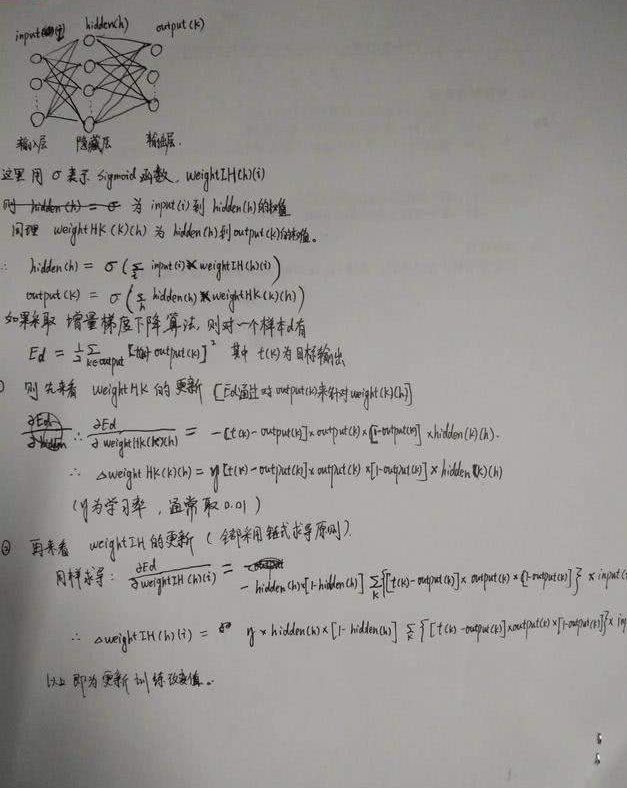 input(i) hidden(h) output(k)
输入层 隐藏层 输出层.
这里用 σ 表示 sigmoid 函数, weightIH(h)(i)
则 hidden(h) = σ 为 input(i) 到 hidden(h)的权值
同理 weightHK(k)(h) 为 hidden(h)到output(k)的权值。
∴ hidden(h) = σ(∑i input(i)×weightIH(h)(i))
output(k) = σ(∑h hidden(h)×weightHK(k)(h))
如果采取 增量梯度下降算法, 则对一个样本d有
Ed = 1/2 ∑k∈output [t(k)- output(k)]² 其中 t(k)为目标输出
① 则先来看 weightHK 的更新 [Ed通过对output(k)来针对weight(k)(h)]
∴ ∂Ed/∂weightHK(k)(h) = -[t(k)-output(k)]×output(k)×[1-output(k)]×hidden(k)(h).
∴ △weightHK(k)(h) = η[t(k)-output(k)]×output(k)×[1-output(k)]×hidden(k)(h)
(η为学习率, 通常取 0.01)
② 再来看 weightIH 的更新 (全部采用链式求导原则).
同样求导: ∂Ed/∂weightIH(h)(i) = - hidden(h)×[1-hidden(h)] ∑k{[t(k)-output(k)]×output(k)×[1-output(k)]} × input(
∴ △weightIH(h)(i) = η×hidden(h)×[1-hidden(h)] ∑k{[t(k)-output(k)]×output(k)×[1-output(k)]}× inp
以上即为更新训练改变值.